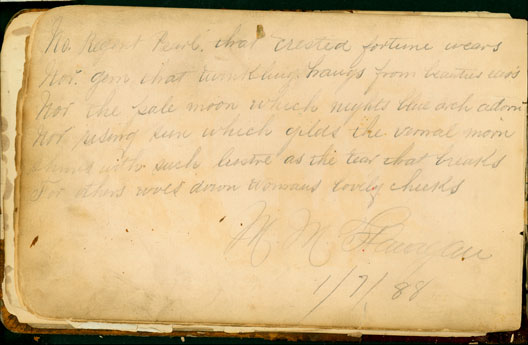 No Regent Pearl. that crested fortune wears
Nor gem that twinkling hangs from beauties ears
Nor the pale moon which nights blue arch adorn
Nor rising sun which gilds the vernal morn
shines with such lustre as the tear that breaks
For others woes down Womans lovely cheeks
M. M. Flanagan
1/7/88